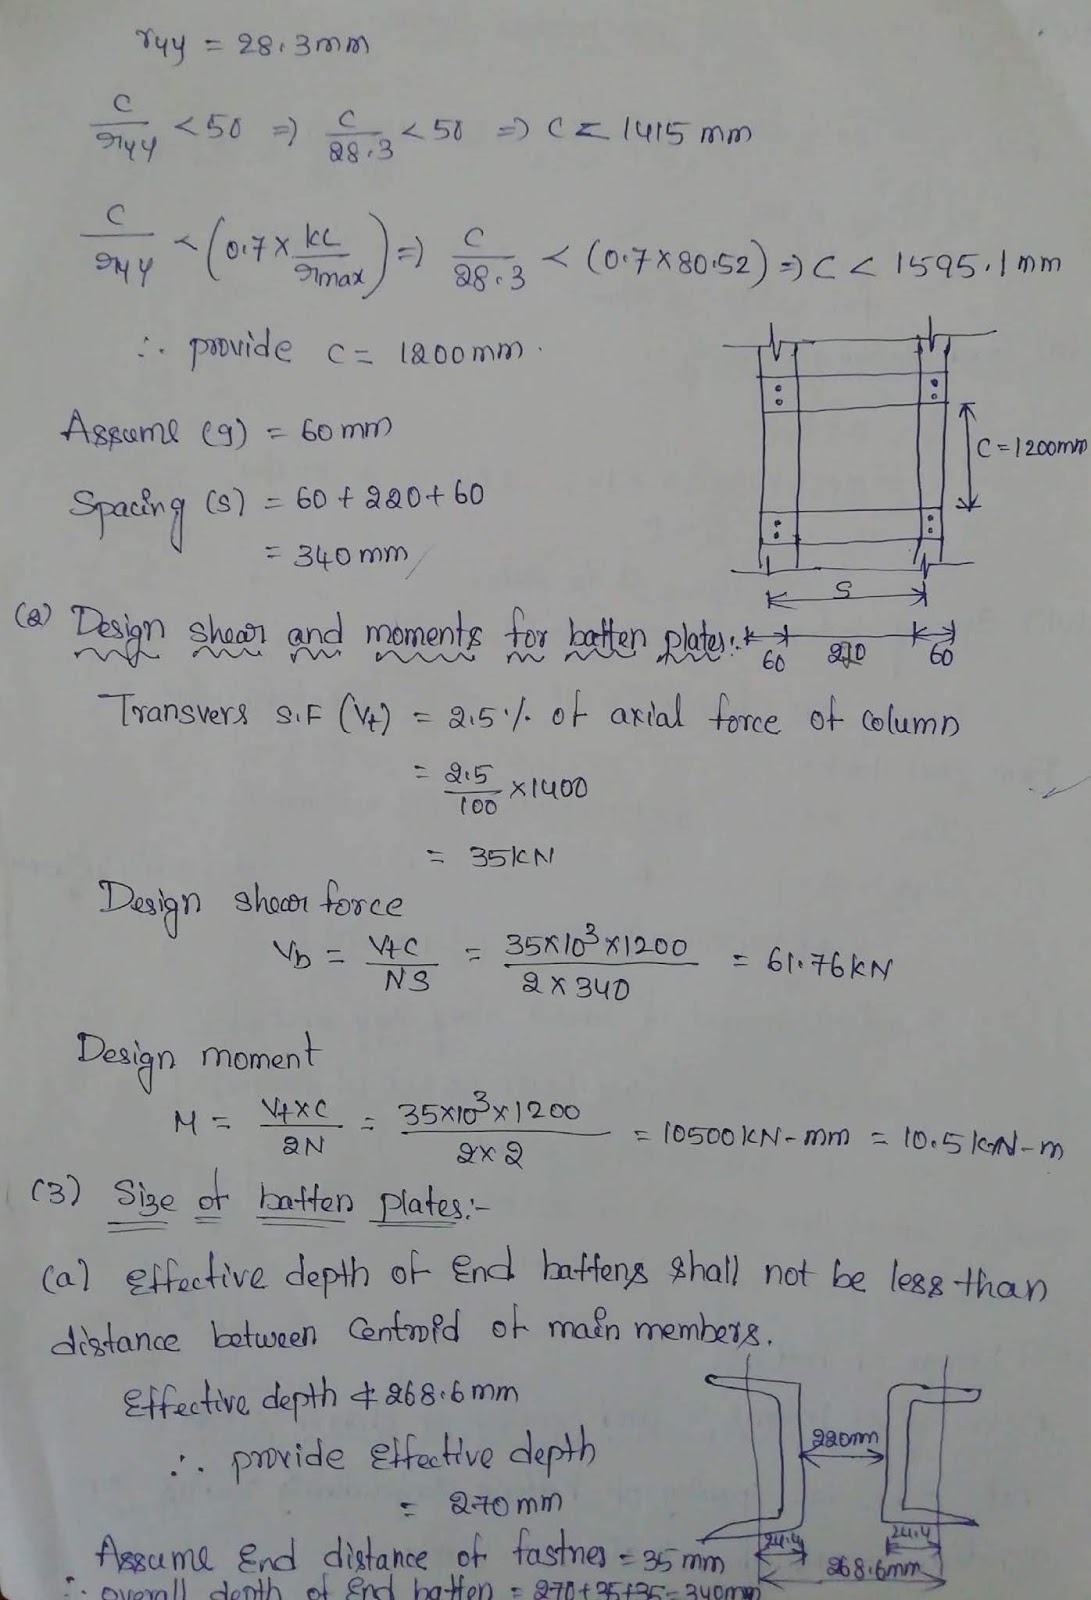 ryy = 28.3mm
C/ryy < 50 => C/28.3 < 50 => C < 1415 mm
C/ryy < (0.7 x KL/rmax) => C/28.3 < (0.7 x 80.52) => C < 1595.1 mm
∴ provide C = 1200mm.
Assume (g) = 60mm
C = 1200mm
Spacing (S) = 60 + 220 + 60
= 340mm
S
(2) Design shear and moments for batten plates:-
60 220 60
Transvers S.F (Vt) = 2.5% of axial force of column
= 2.5/100 x 1400
= 35KN
Design shear force
Vb = VtC/NS = 35x10³x1200/2x340 = 61.76KN
Design moment
M = VtxC/2N = 35x10³x1200/2x2 = 10500KN-mm = 10.5KN-m
(3) Size of batten plates:-
(a) Effective depth of End battens shall not be less than
distance between Centroid of main members.
Effective depth ≮ 268.6mm
220mm
∴ provide Effective depth
= 270mm
24.4 24.4
Assume End distance of fastnes = 35mm
268.6mm
∴ overall depth of End batten = 270+35+35=340mm